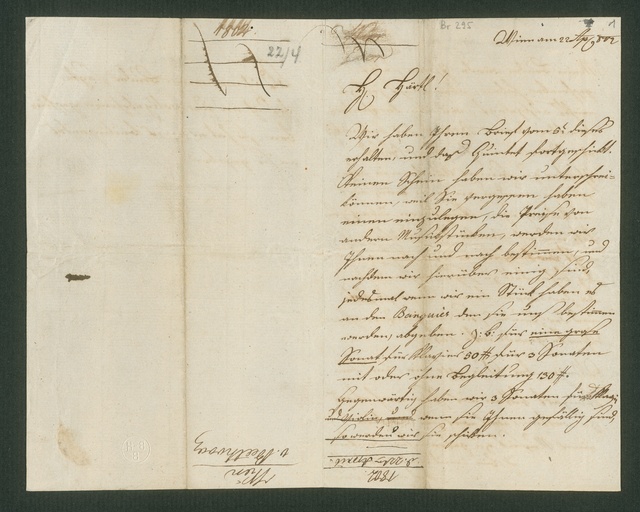 1804.
22/4
Br 295
1
Wien am 22 Apr. 1802
H. Härtl!
Wir haben Ihren Brief vom 5t dieses
erhalten, und das Quintet fortgeschikt.
Keinen Schein haben wir unterschrei-
können, weil Sie vergessen haben
einen einzulegen, die Preise von
andern Musikstücken, werden wir
Ihnen nach und nach bestimmen, und
nachdem wir hierüber einig sind,
jedesmal wenn wir ein Stück haben es
an den Banquier den sie uns bestimmen
werden, abgeben. z: b: für eine große
Sonat für Klavier 50 # für 3 Sonaten
mit oder ohne Begleitung 130 #.
Gegenwärtig haben wir 3 Sonaten für Klavi
und Violin, und wenn sie Ihnen gefällig sind,
so werden wir sie schiken.
Wien
v. Beethoven
1802
d. 22